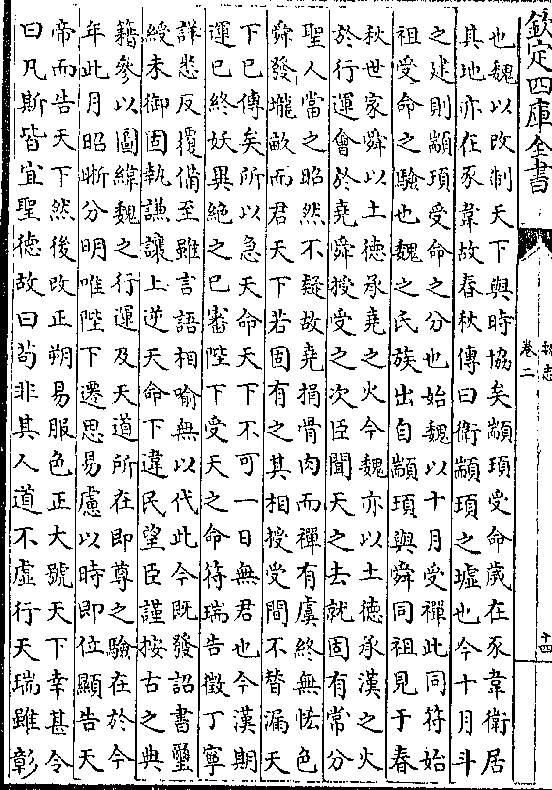 欽定四庫全書
卷二
十四
也魏以改制天下與時協矣顓頊受命歳在豕韋衛居
其地亦在豕韋故春秋傳曰衛顓頊之墟也今十月斗
之建則顓頊受命之分也始魏以十月受禪此同符始
祖受命之驗也魏之氏族出自顓頊與舜同祖見于春
秋世家舜以土德承堯之火今魏亦以土德承漢之火
於行運會於堯舜授受之次臣聞天之去就固有常分
聖人當之昭然不疑故堯捐骨肉而禪有虞終無恡色
舜發壠畝而君天下若固有之其相授受間不替漏天
下已傳矣所以急天命天下不可一日無君也今漢期
運已終妖異絶之已審陛下受天之命符瑞告徵丁寧
詳悉反覆備至雖言語相喻無以代此今既發詔書璽
綬未御固執謙讓上逆天命下違民望臣謹按古之典
籍參以圖緯魏之行運及天道所在即尊之驗在於今
年此月昭晰分明唯陛下遷思易慮以時即位顯告天
帝而告天下然後改正朔易服色正大號天下幸甚令
曰凡斯皆宜聖德故曰茍非其人道不虛行天瑞雖彰